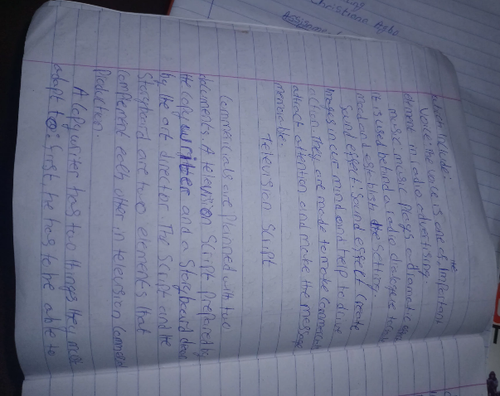 Voice: The voice is one of the important
element in radio advertising.
music: music plays
it is used behind a radio dialogue to
mood and establish the setting.
Sound effect: sound effect create
images in our mind and help to drive
action. They are made to make commercial
attract attention and make the message
memorable.
Television Script
Commercials are planned with two
documents. A television script prepared by
the copywriter and a storyboard
by the art director. The script and the
Storyboard are two elements that
complement each other in television
Production.
A copywriter has two things they
adapt to. first, he has to be able to
Christiana
Assignment